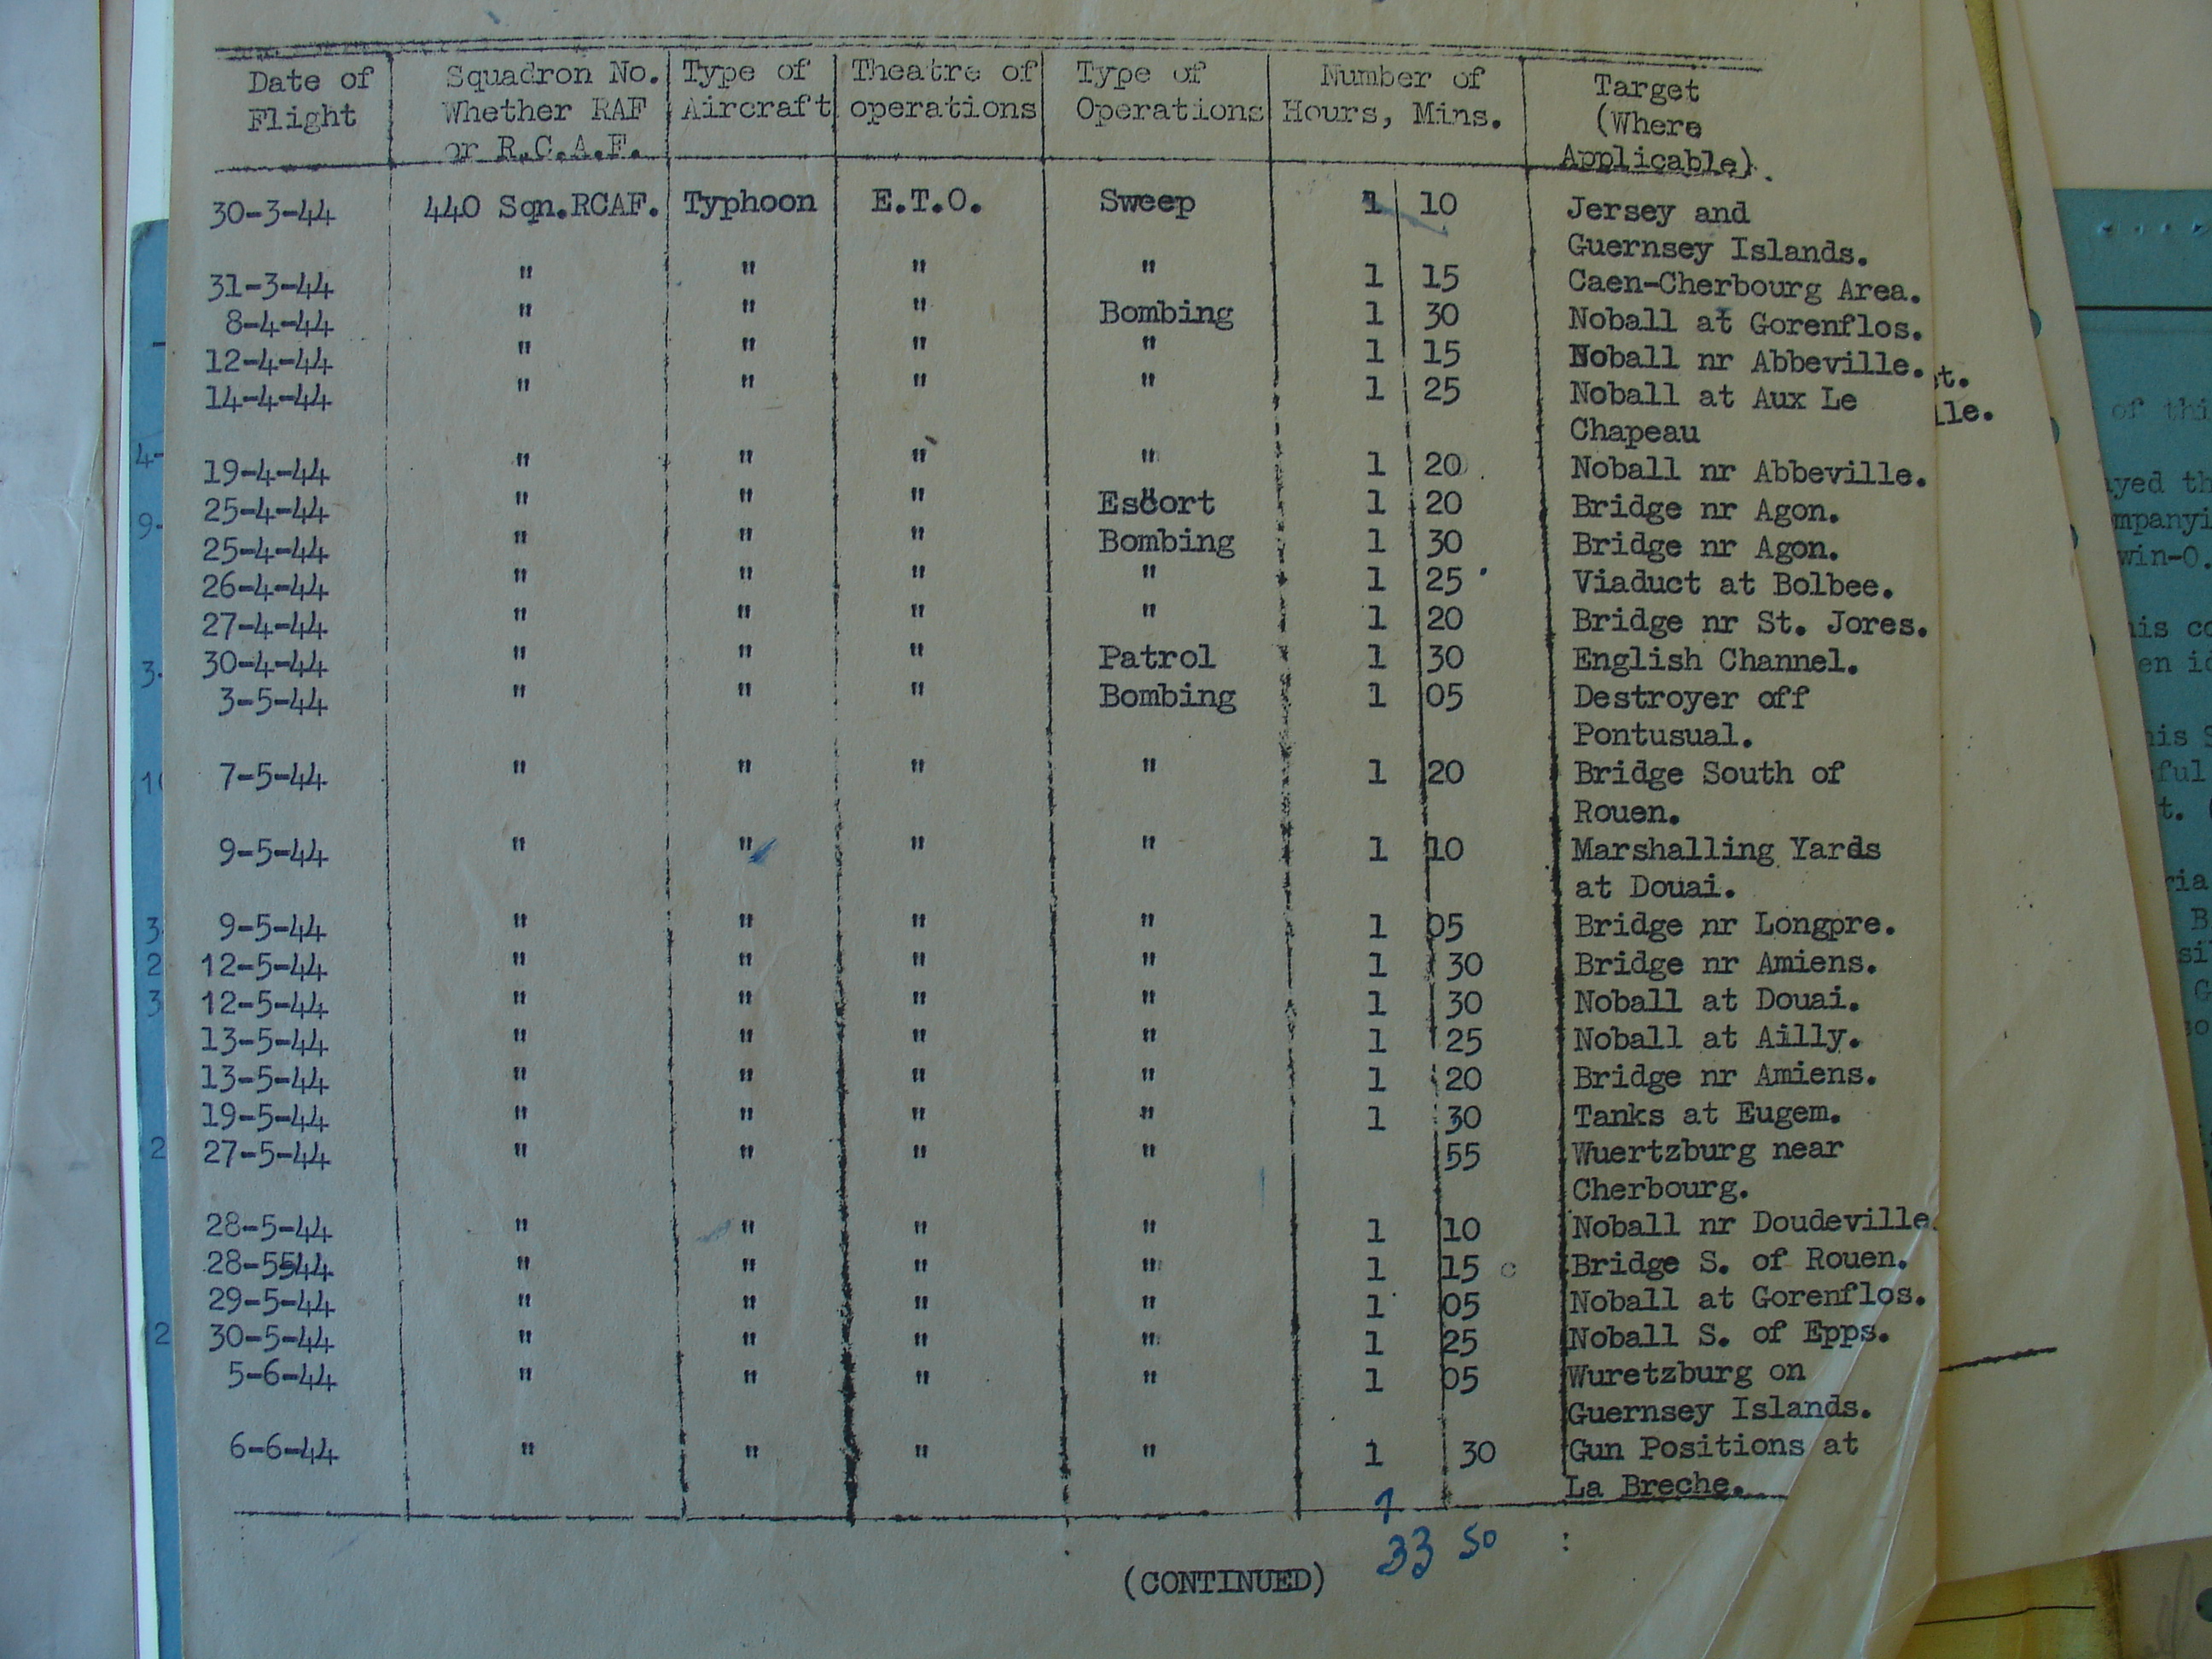 Date of Squadron No. Type of Theatre of Type of Number of Target
Flight Whether RAF Aircraft operations Operations Hours, Mins. (Where
or R.C.A.F. Applicable).
30-3-44 440 Sqn.RCAF. Typhoon E.T.O. Sweep 1 10 Jersey and
Guernsey Islands.
31-3-44 " " " " 1 15 Caen-Cherbourg Area.
8-4-44 " " " Bombing 1 30 Noball at Gorenflos.
12-4-44 " " " " 1 15 Noball nr Abbeville.
14-4-44 " " " " 1 25 Noball at Aux Le
Chapeau
19-4-44 " " " " 1 20 Noball nr Abbeville.
25-4-44 " " " Escort 1 20 Bridge nr Agon.
25-4-44 " " " Bombing 1 30 Bridge nr Agon.
26-4-44 " " " " 1 25 Viaduct at Bolbee.
27-4-44 " " " " 1 20 Bridge nr St. Jores.
30-4-44 " " " Patrol 1 30 English Channel.
3-5-44 " " " Bombing 1 05 Destroyer off
Pontusual.
7-5-44 " " " " 1 20 Bridge South of
Rouen.
9-5-44 " " " " 1 10 Marshalling Yards
at Douai.
9-5-44 " " " " 1 05 Bridge nr Longpre.
12-5-44 " " " " 1 30 Bridge nr Amiens.
12-5-44 " " " " 1 30 Noball at Douai.
13-5-44 " " " " 1 25 Noball at Ailly.
13-5-44 " " " " 1 20 Bridge nr Amiens.
19-5-44 " " " " 1 30 Tanks at Eugem.
27-5-44 " " " " 55 Wuertzburg near
Cherbourg.
28-5-44 " " " " 1 10 Noball nr Doudeville.
28-5-44 " " " " 1 15 Bridge S. of Rouen.
29-5-44 " " " " 1 05 Noball at Gorenflos.
30-5-44 " " " " 1 25 Noball S. of Epps.
5-6-44 " " " " 1 05 Wuretzburg on
Guernsey Islands.
6-6-44 " " " " 1 30 Gun Positions at
La Breche.
1
33 50
(CONTINUED)